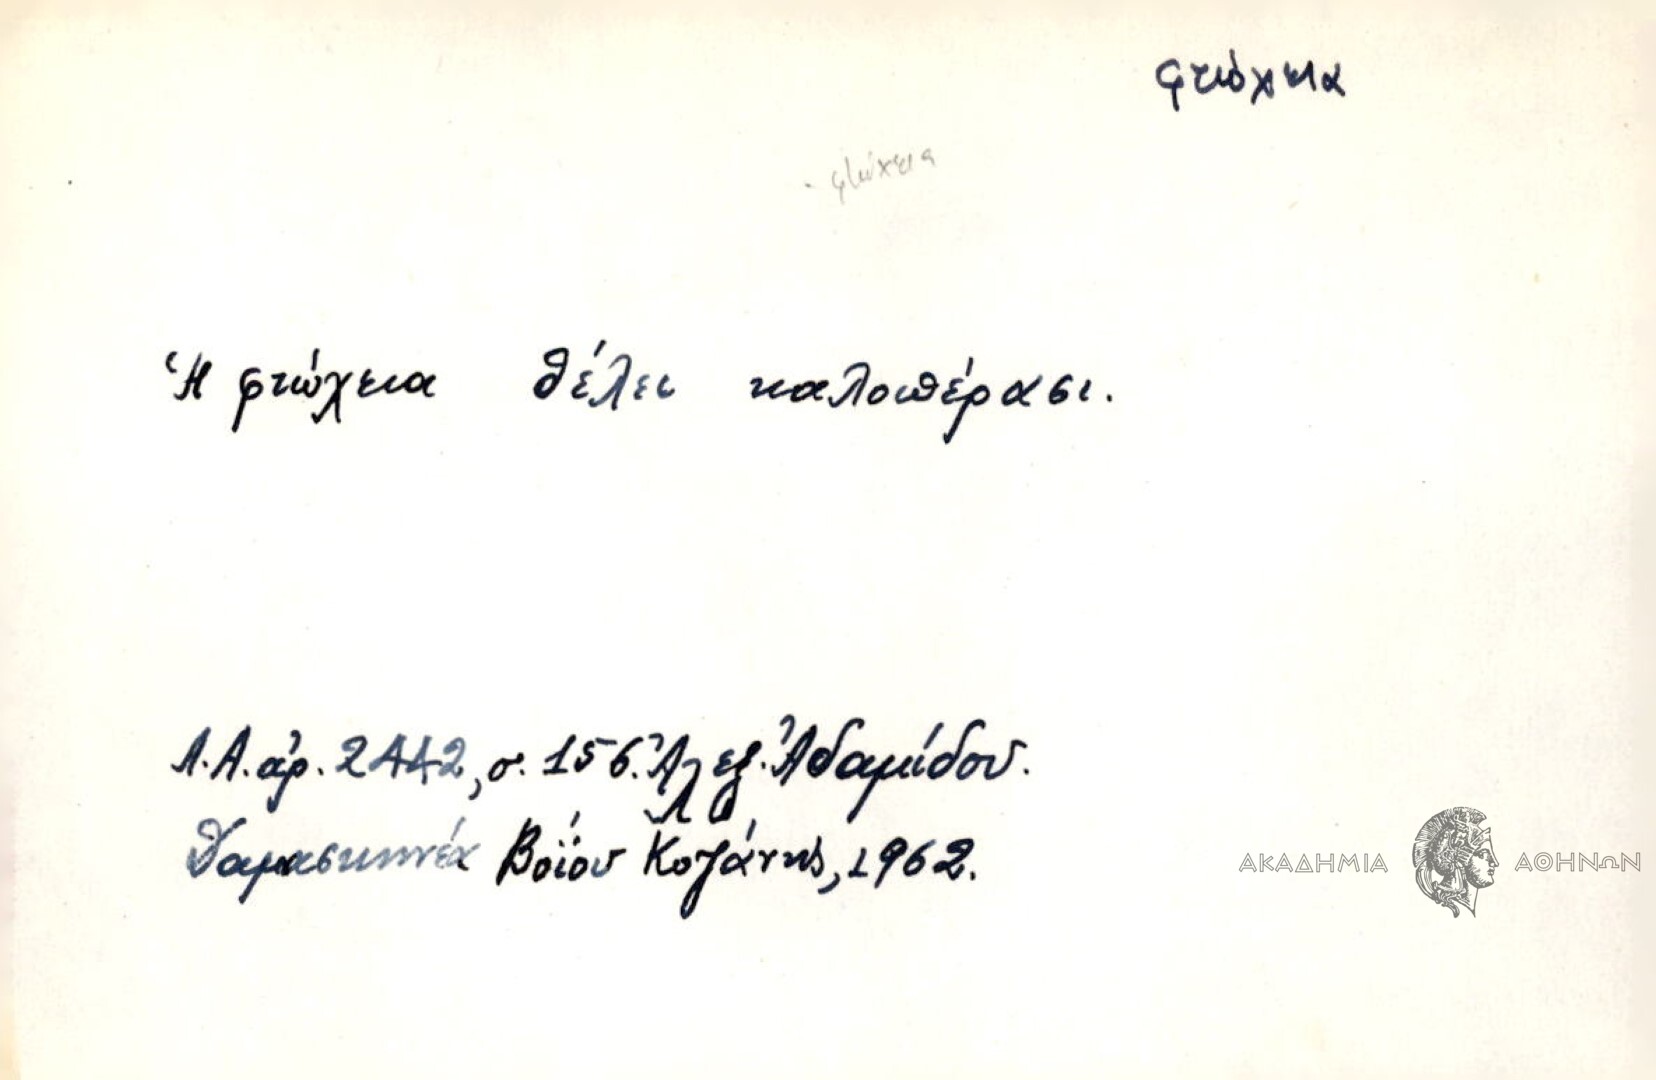 φτώχεια
φτώχεια
Ἡ φτώχεια θέλει καλοπέρασι.
Λ.Α. ἀρ. 2442, σ. 156. Ἀλεξ. Ἀδαμίδου.
Δαμασκηνέα Βοΐου Κοζάνης, 1962.
ΑΚΑΔΗΜΙΑ ΑΘΗΝΩΝ